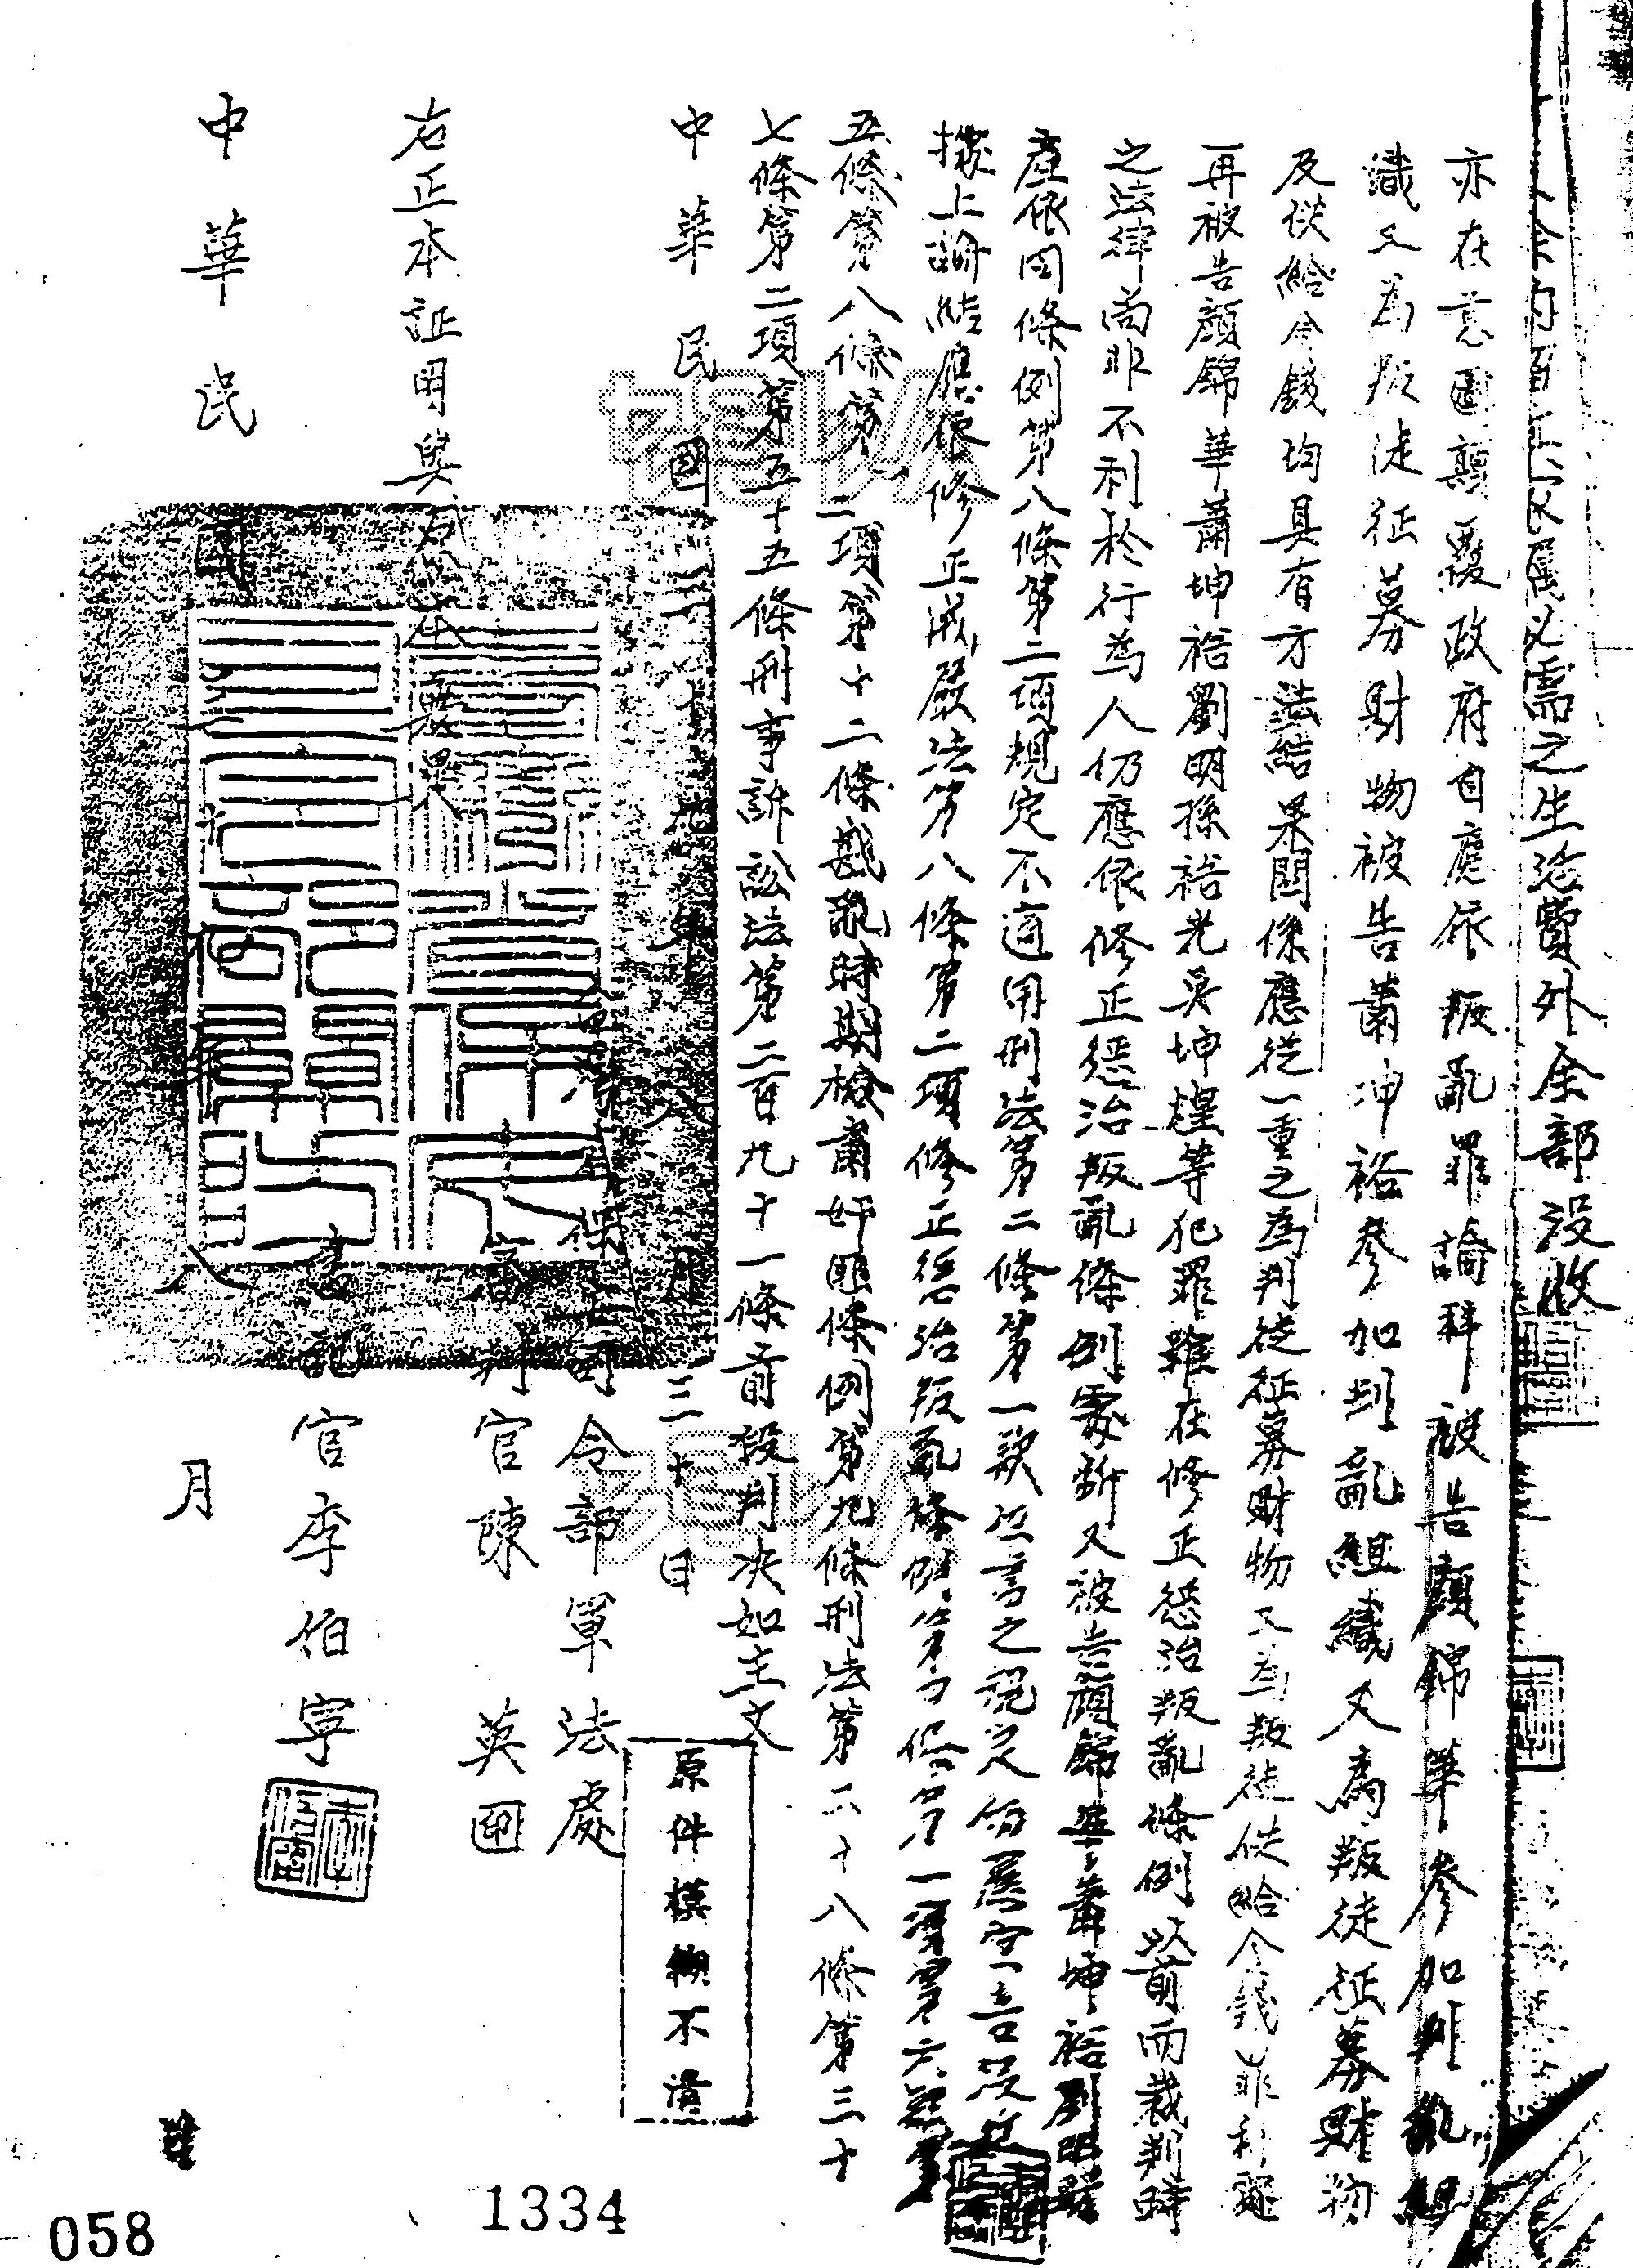 人余均酌留其家屬必需之生活費外全部沒收
亦在意圖顛覆政府自應依叛亂罪論科被告顏錦華參加叛亂組
織又為叛徒征募財物被告蕭坤裕參加判亂組織又為叛徒征募財物
及供給金錢均具有方法結果關係應從一重之為判徒征募財物又為叛徒供給金錢罪科處
再被告顏錦華蕭坤裕劉明孫裕光吳坤煌等犯罪雖在修正懲治叛亂條例以前而裁判時
之法律尚非不利於行為人仍應依修正懲治叛亂條例處斷又被告顏錦華蕭坤裕劉明財
產依同條例第八條第二項規定不適用刑法第二條第一款但書之規定仍應宣告沒收
據上論結應依修正戒嚴法第八條第二項修正懲治叛亂條例第十條第一項第六款第
五條第八條第一二項第十二條戡亂時期檢肅奸匪條例第九條刑法第二十八條第三十
七條第二項第五十五條刑事訴訟法第二百九十一條前段判決如主文
中華民國三十九年 月三十日
令部軍法處
審判官陳英
右正本証明與原本無異
書記官李伯宇
中華民國三十九年八月
原件模糊不清
1334
058